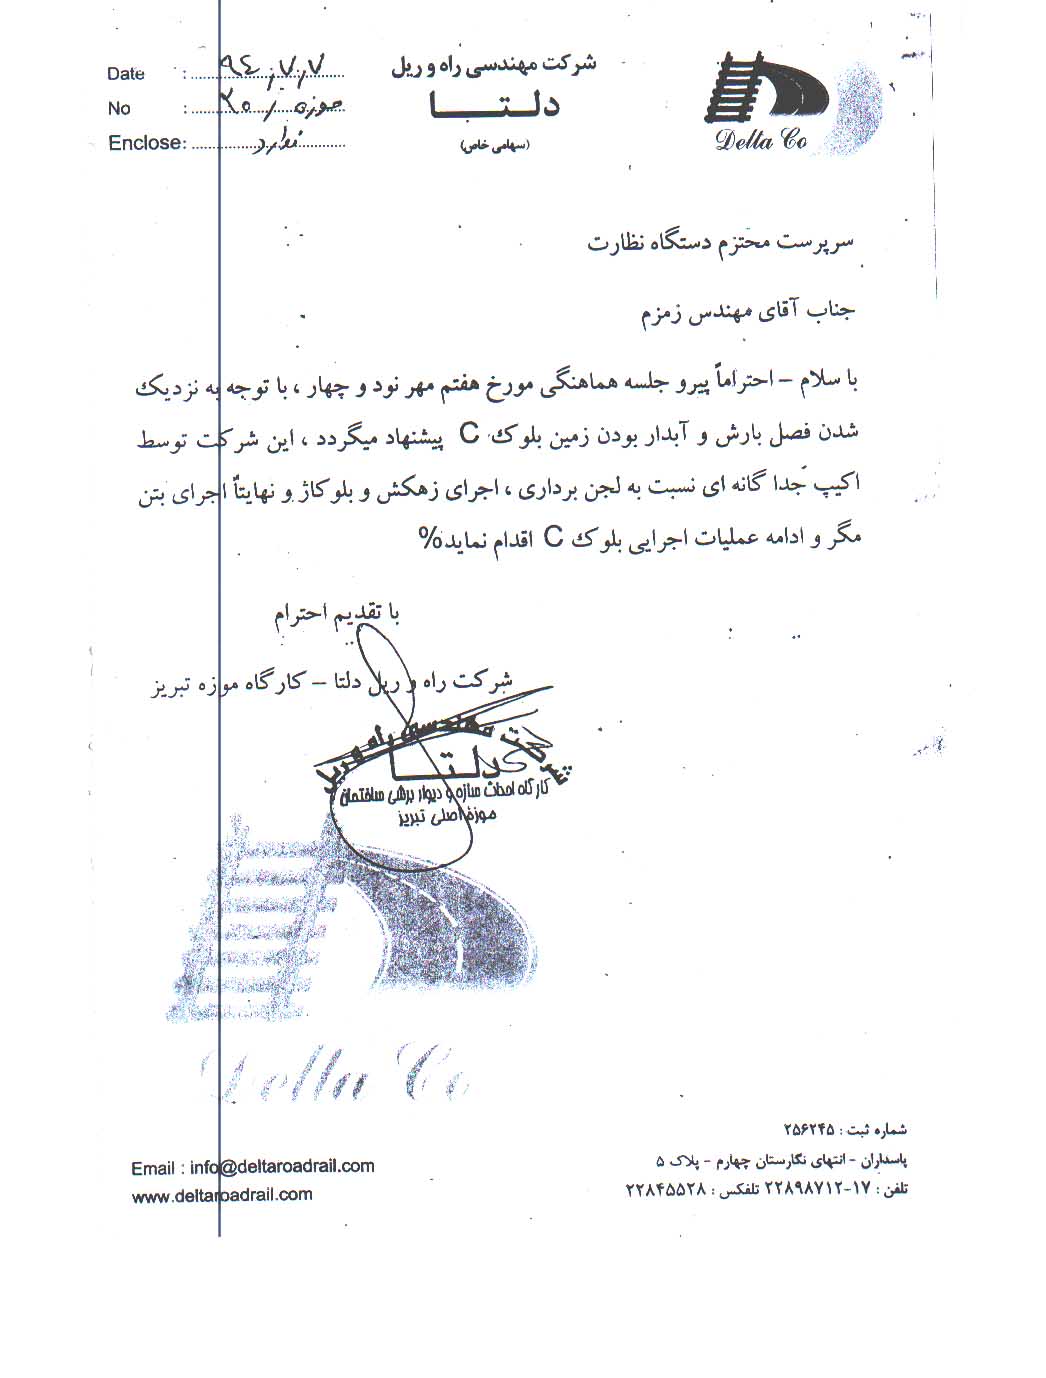 Date : ۹۴,۷,۷
No : موزه ۲۰
Enclose: ندارد
شرکت مهندسی راه و ریل
دلتا
(سهامی خاص)
Delta Co
سرپرست محترم دستگاه نظارت
جناب آقای مهندس زمزم
با سلام – احتراماً پیرو جلسه هماهنگی مورخ هفتم مهر نود و چهار ، با توجه به نزدیک
شدن فصل بارش و آبدار بودن زمین بلوک C پیشنهاد میگردد ، این شرکت توسط
اکیپ جدا گانه ای نسبت به لجن برداری ، اجرای زهکش و بلوکاژ و نهایتاً اجرای بتن
مگر و ادامه عملیات اجرایی بلوک C اقدام نماید%
با تقدیم احترام
شرکت راه و ریل دلتا – کارگاه موزه تبریز
شرکت مهندسی راه و ریل
دلتا
کارگاه احداث سازه و دیوار برشی ساختمان
موزه اصلی تبریز
Delta Co
شماره ثبت : ۲۵۶۲۴۵
پاسداران - انتهای نگارستان چهارم - پلاک ۵
تلفن : ۱۷-۲۲۸۹۸۷۱۲ تلفکس : ۲۲۸۴۵۵۲۸
Email : info@deltaroadrail.com
www.deltaroadrail.com